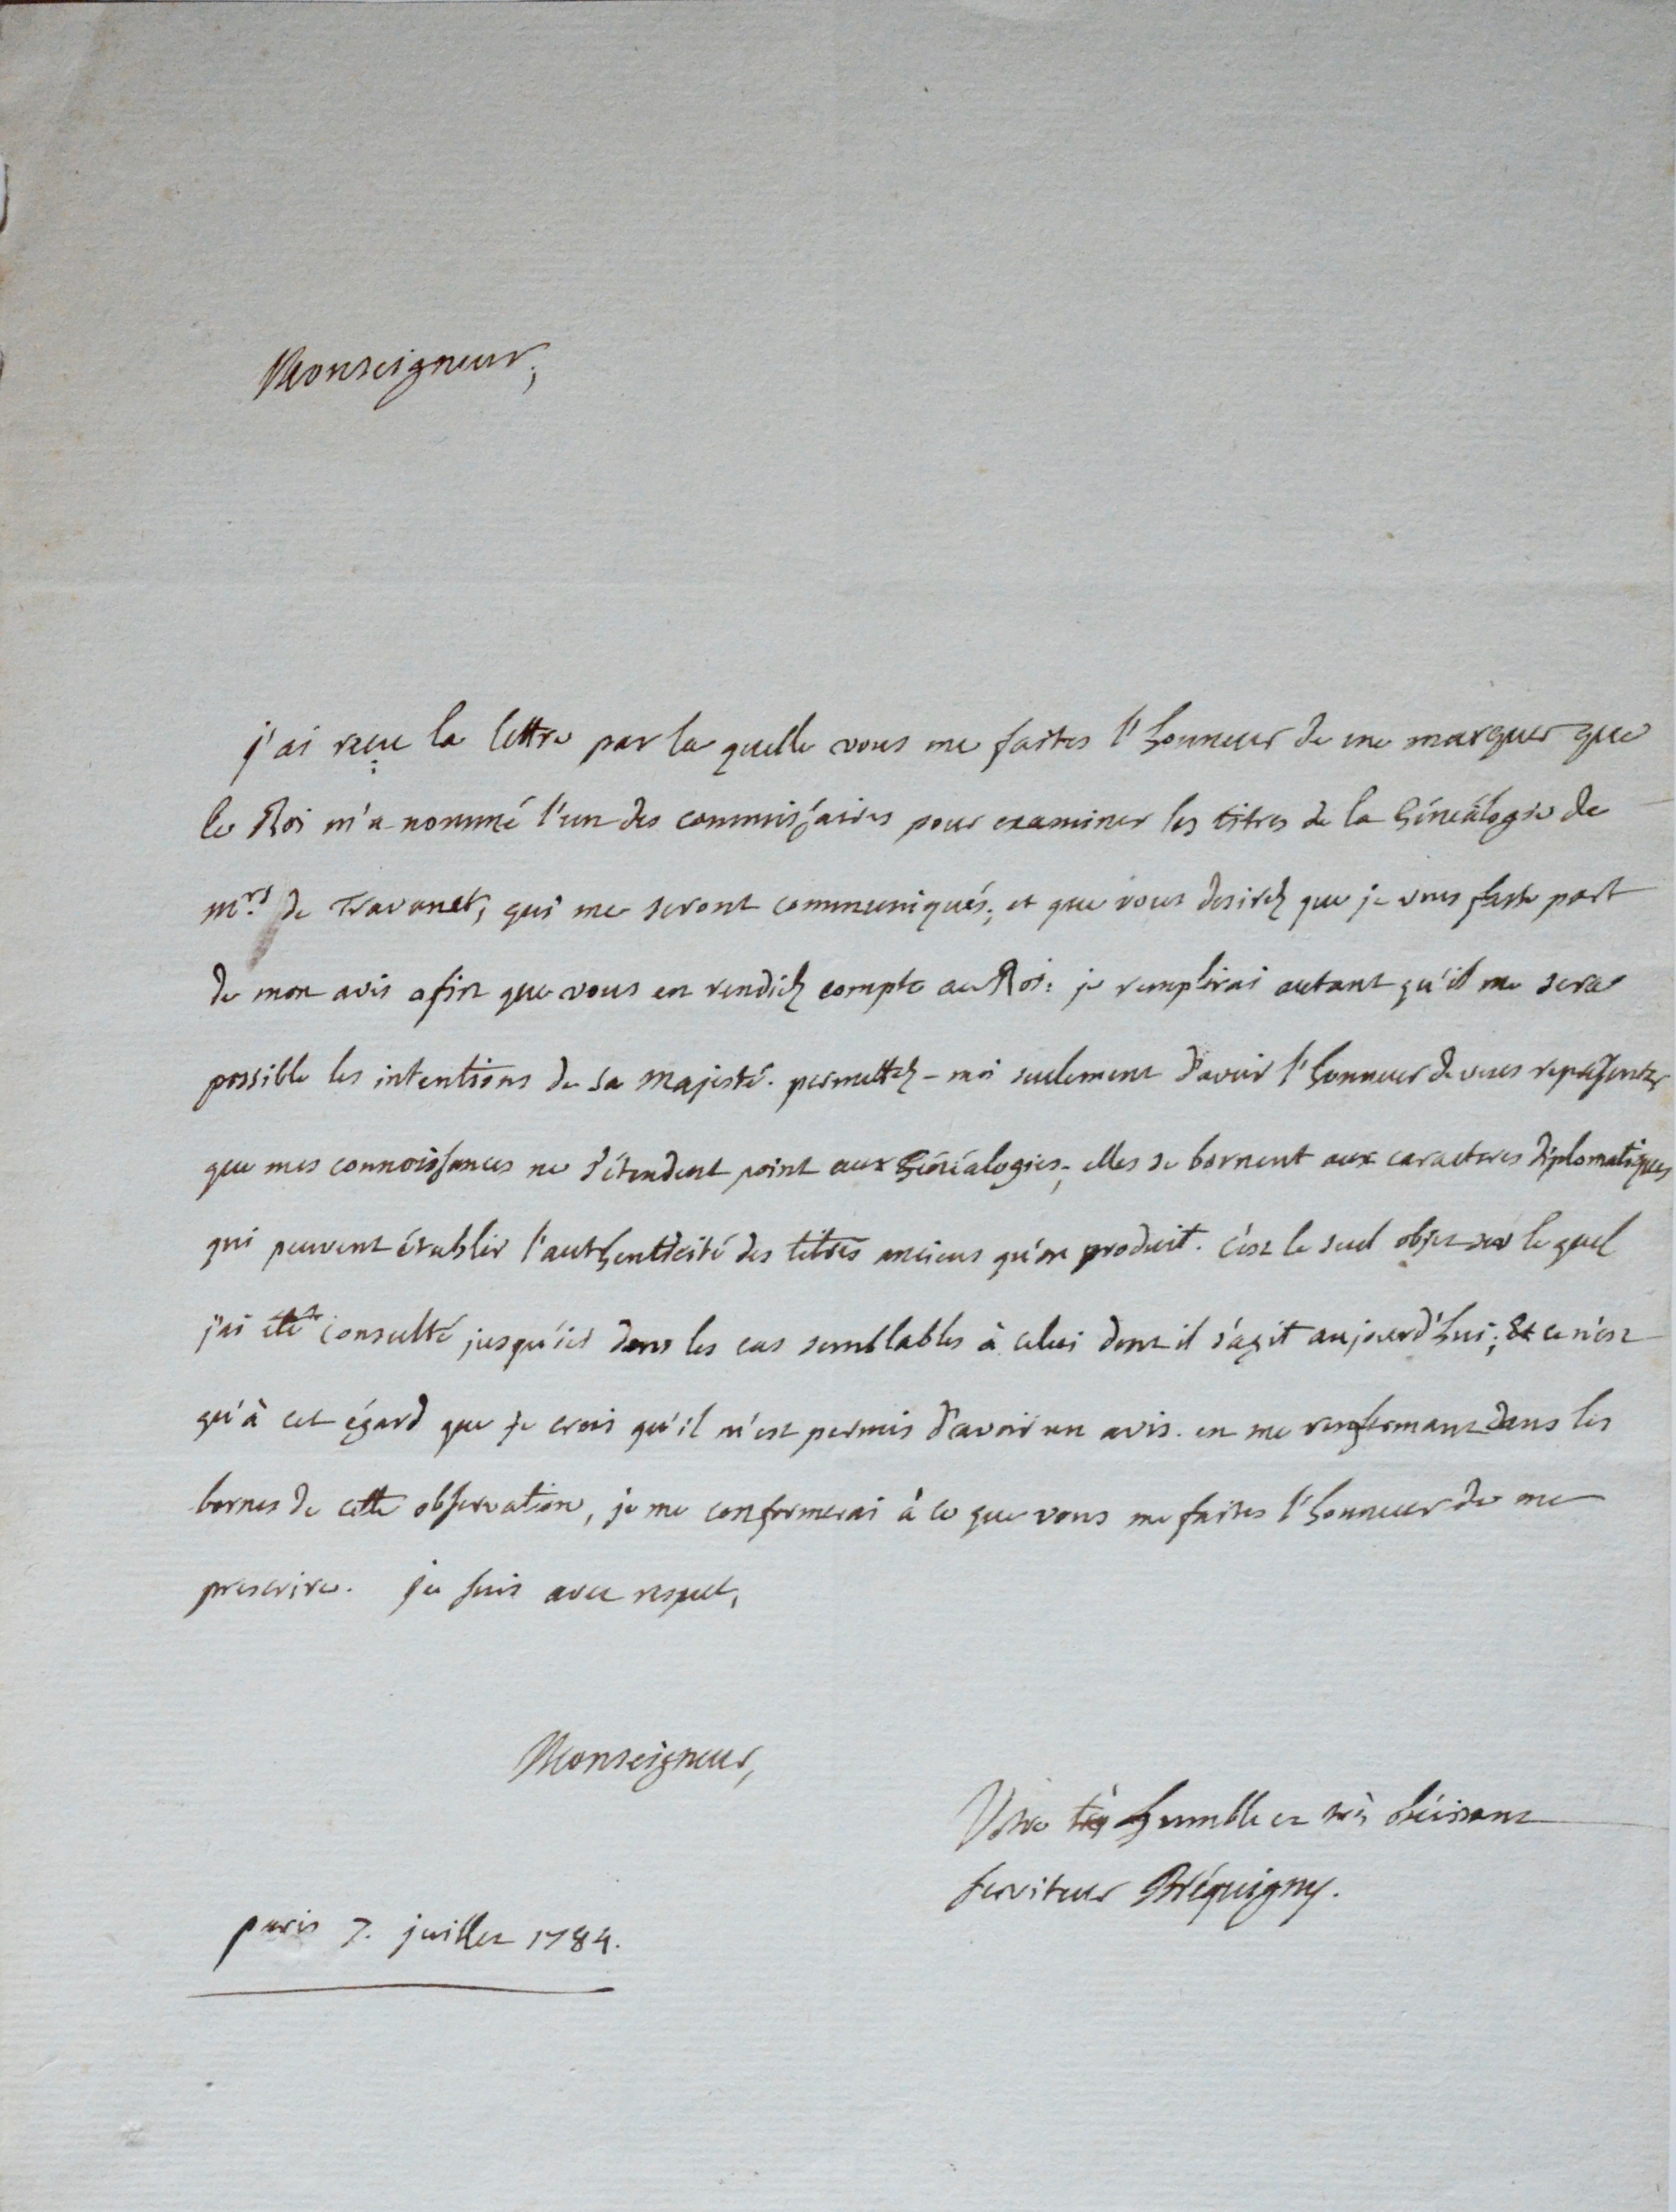 Monseigneur,
j'ai reçu la lettre par la quelle vous me faites l'honneur de me marquer que
le Roi m'a nommé l'un des commissaires pour examiner les titres de la Généalogie de
mrs. de Travanet, qui me seront communiqués, et que vous desirez que je vous fasse part
de mon avis afin que vous en rendiez compte au Roi. je remplirai autant qu'il me sera
possible les intentions de sa Majesté. permettez-moi seulement d'avoir l'honneur de vous représenter
que mes connoissances ne s'étendent point aux Généalogies; elles se bornent aux caracteres diplomatiques
qui peuvent établir l'authenticité des titres anciens qu'on produit. c'est le seul objet sur le quel
j'ai été consulté jusqu'ici dans les cas semblables à celui dont il s'agit aujourd'hui; & ce n'est
qu'à cet égard que je crois qu'il m'est permis d'avoir un avis. en me renfermant dans les
bornes de cette observation, je me conformerai à ce que vous me faites l'honneur de me
prescrire. je suis avec respect,
Monseigneur,
Votre très humble et très obéissant
serviteur Bréquigny.
paris 7. juillet 1784.